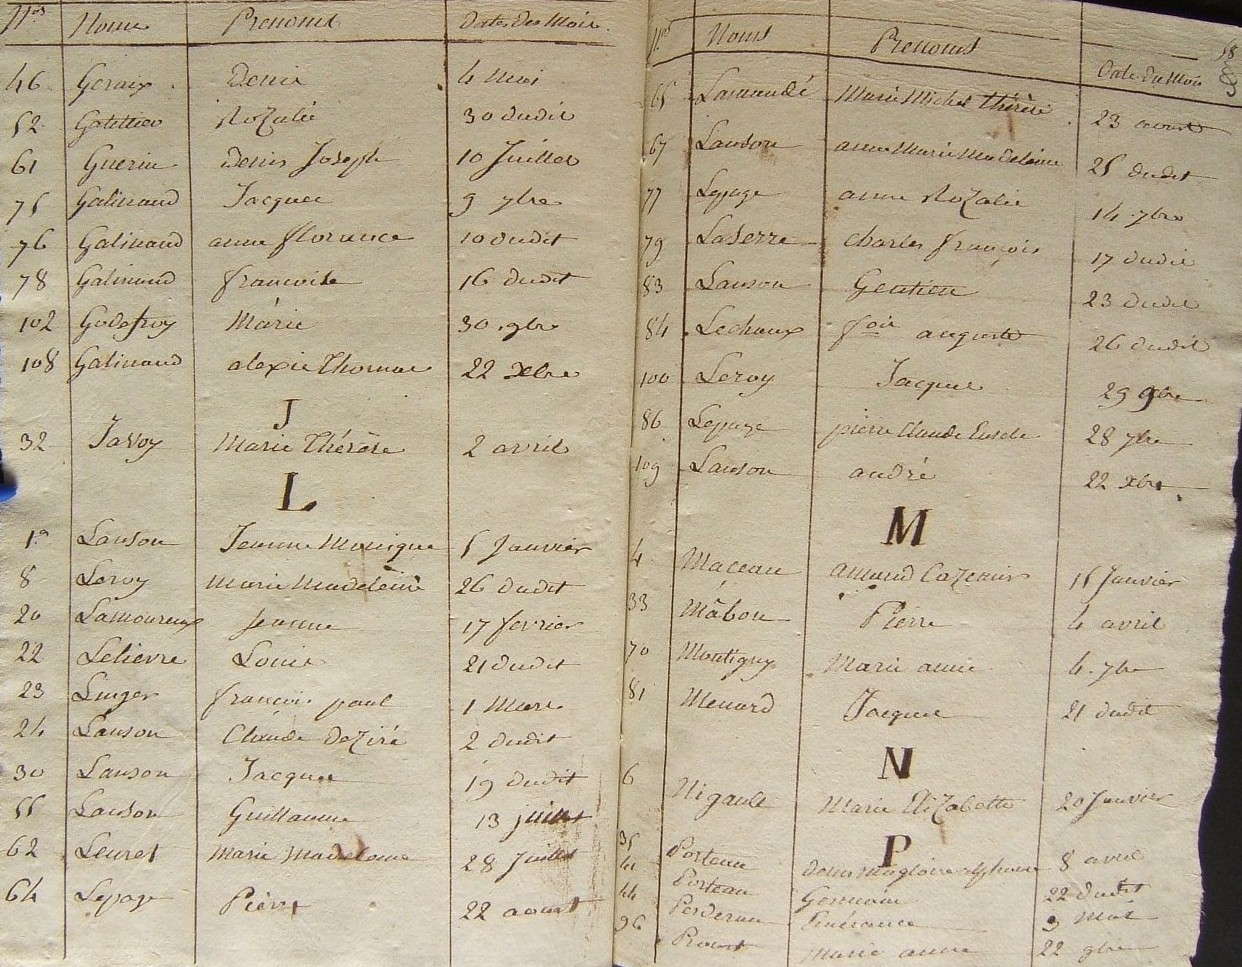 Nos Noms Prenoms Dates des Mois
46 Geraux Denis 4 Mai
52 Rozalie 30 dudit
61 Guerin Denis Joseph 10 Juillet
75 Galinand Jacques 9 7bre
76 Galinand anne florence 10 dudit
78 Galinand francoise 16 dudit
102 Godefroy Marie 30 9bre
108 Galinand alexis Thomas 22 Xbre
J
32 Javoy Marie Thérèse 2 avril
L
1er Lanson Jeanne Monique 5 Janvier
8 Leroy Marie Madeleine 26 dudit
20 Lamoureux Jeanne 17 fevrier
22 Lelievre Louis 21 dudit
23 Linger francois paul 1 Mars
24 Lanson Claude Deziré 2 dudit
30 Lanson Jacques 19 dudit
55 Lanson Guillaume 13 juillet
62 Leuret Marie Madelaine 28 Juillet
64 Lepage Pierre 22 aout
Nos Noms Prenoms Date du Mois
58
65 Lamandé Marie Michel Thérèse 23 aout
67 Lanson anne Marie Madeleine 25 dudit
77 Lepage anne Rozalie 14 7bre
79 Laserre Charles françois 17 dudit
83 Lanson Gentien 23 dudit
84 Lechaux fois auguste 26 dudit
100 Leroy Jacques 29 9bre
86 Lepage pierre Claude Eusebe 28 7bre
109 Lanson andré 22 Xbre
M
4 Maceau amand Cazimir 15 Janvier
33 Mâbon Pierre 4 avril
70 Montigny Marie anne 4 7bre
81 Menard Jacques 21 dudit
N
6 Nigault Marie Elizabette 20 Janvier
P
35 Porteau Denis Magloire alphonse 8 avril
41 Porteau Germain 22 dudit
44 Perdereau 9 Mai
96 Proust Marie anne 22 9bre